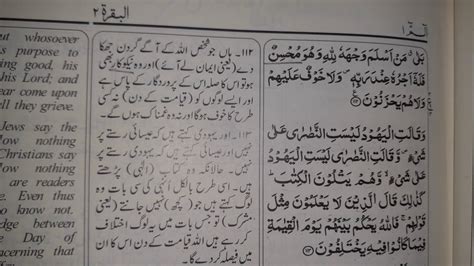 البقرة ٢
الٓمّٓ ١
ut whosoever
s purpose to
ing good, his
his Lord; and
ear come upon
ll they grieve.
Jews say the
low nothing
Christians say
ow nothing
are readers
e. Even thus
o know not.
dge between
Day of
oncerning that
۱۱۲۔ ہاں جو شخص اللہ کے آگے گردن جھکا
دے (یعنی ایمان لے آئے) اور وہ نیکوکار بھی
ہو تو اس کا صلہ اس کے پروردگار کے پاس ہے
اور ایسے لوگوں کو (قیامت کے دن) نہ کسی
طرح کا خوف ہوگا اور نہ وہ غمناک ہوں گے۔
۱۱۳۔ اور یہودی کہتے ہیں کہ عیسائی رستے پر
نہیں اور عیسائی کہتے ہیں کہ یہودی رستے پر
نہیں حالانکہ وہ کتاب (الٰہی) پڑھتے
ہیں۔ اسی طرح بالکل انہی کی سی بات وہ
لوگ کہتے ہیں جو (کچھ) نہیں جانتے (یعنی
مشرک) تو جس بات میں یہ لوگ اختلاف کر
رہے ہیں اللہ قیامت کے دن اس کا ان
میں فیصلہ کر دے گا۔
بَلٰى مَنْ اَسْلَمَ وَجْهَهٗ لِلّٰهِ وَهُوَ مُحْسِنٌ
فَلَهٗٓ اَجْرُهٗ عِنْدَ رَبِّهٖ وَلَا خَوْفٌ عَلَيْهِمْ
وَلَا هُمْ يَحْزَنُوْنَ
وَقَالَتِ الْيَهُوْدُ لَيْسَتِ النَّصٰرٰى عَلٰى
شَيْءٍ وَّقَالَتِ النَّصٰرٰى لَيْسَتِ الْيَهُوْدُ
عَلٰى شَيْءٍ وَّهُمْ يَتْلُوْنَ الْكِتٰبَ
كَذٰلِكَ قَالَ الَّذِيْنَ لَا يَعْلَمُوْنَ مِثْلَ
قَوْلِهِمْ فَاللّٰهُ يَحْكُمُ بَيْنَهُمْ يَوْمَ الْقِيٰمَةِ
فِيْمَا كَانُوْا فِيْهِ يَخْتَلِفُوْنَ